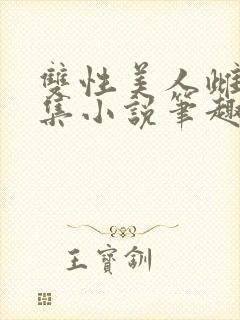 雙性美人雌
集小說筆趣
王寶釧